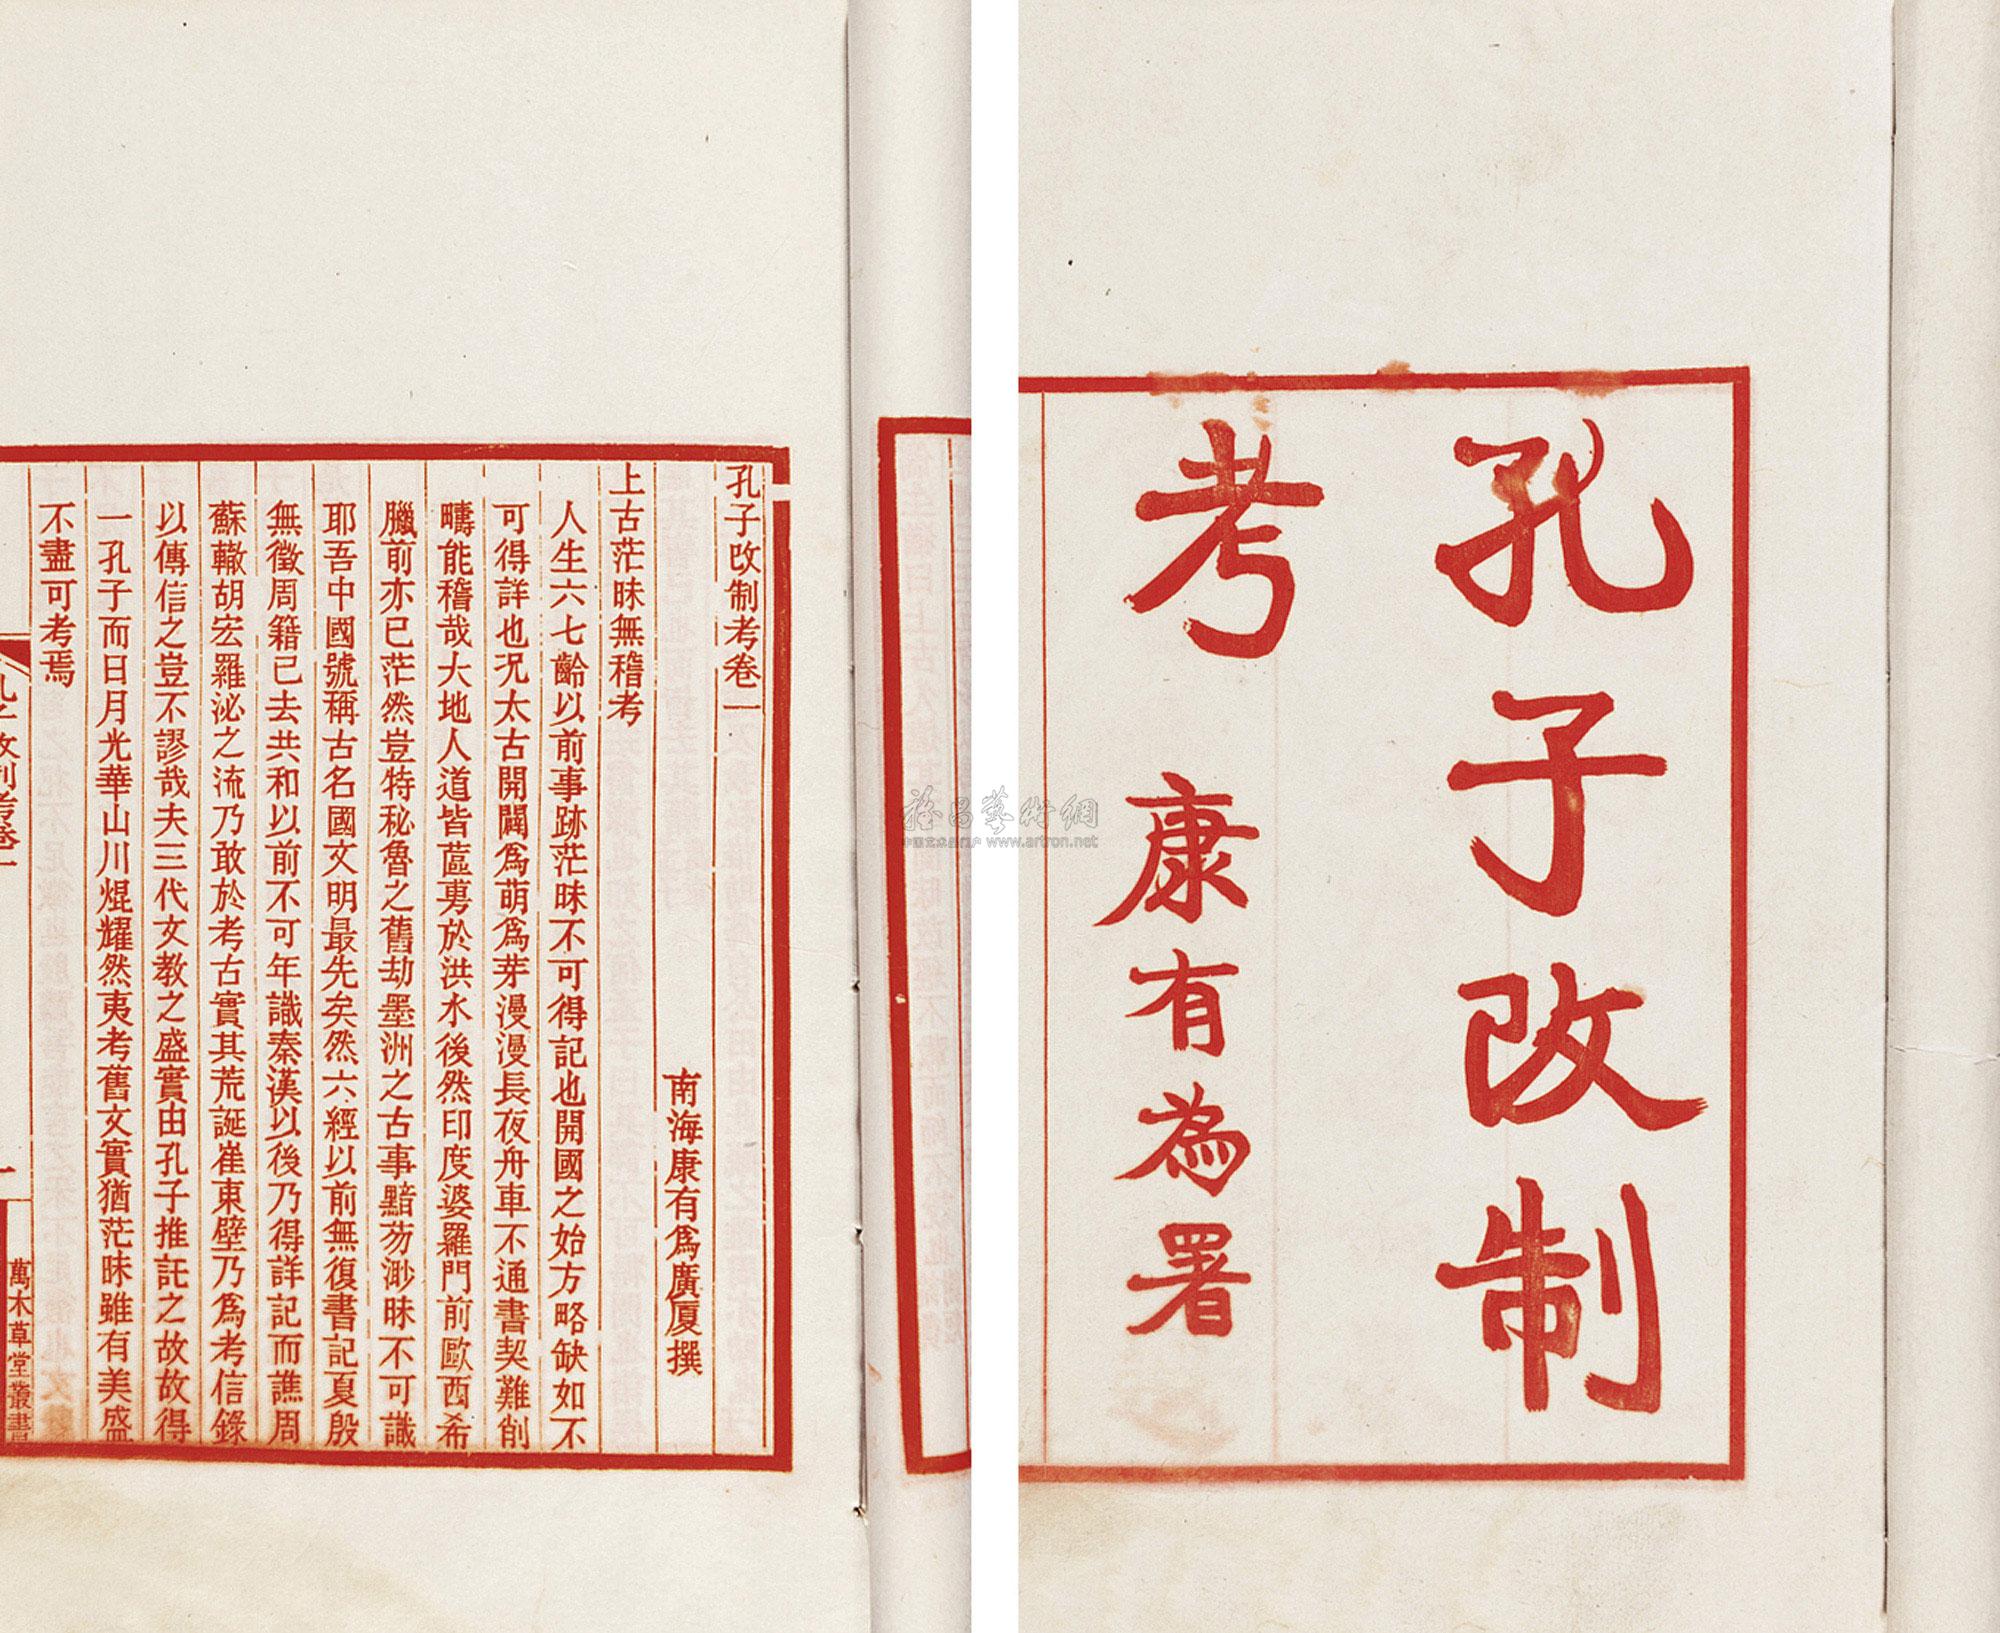 孔子改制
考
康有為署
孔子改制考卷一
南海康有爲廣厦撰
上古茫昧無稽考
人生六七齡以前事跡茫昧不可得記也開國之始方略缺如不
可得詳也况太古開闢爲萌爲芽漫漫長夜舟車不通書契難削
疇能稽哉大地人道皆蓲萭於洪水後然印度婆羅門前歐西希
臘前亦已茫然豈特秘魯之舊劫墨洲之古事黯芴渺昧不可識
耶吾中國號稱古名國文明最先矣然六經以前無復書記夏殷
無徵周籍已去共和以前不可年識秦漢以後乃得詳記而譙周
蘇轍胡宏羅泌之流乃敢於考古實其荒誕崔東壁乃爲考信錄
以傳信之豈不謬哉夫三代文教之盛實由孔子推託之故故得
一孔子而日月光華山川焜耀然夷考舊文實猶茫昧雖有美盛
不盡可考焉
孔子改制考卷一
一
萬木草堂叢書
雅昌藝術網
中国艺术品门户 www.artron.net